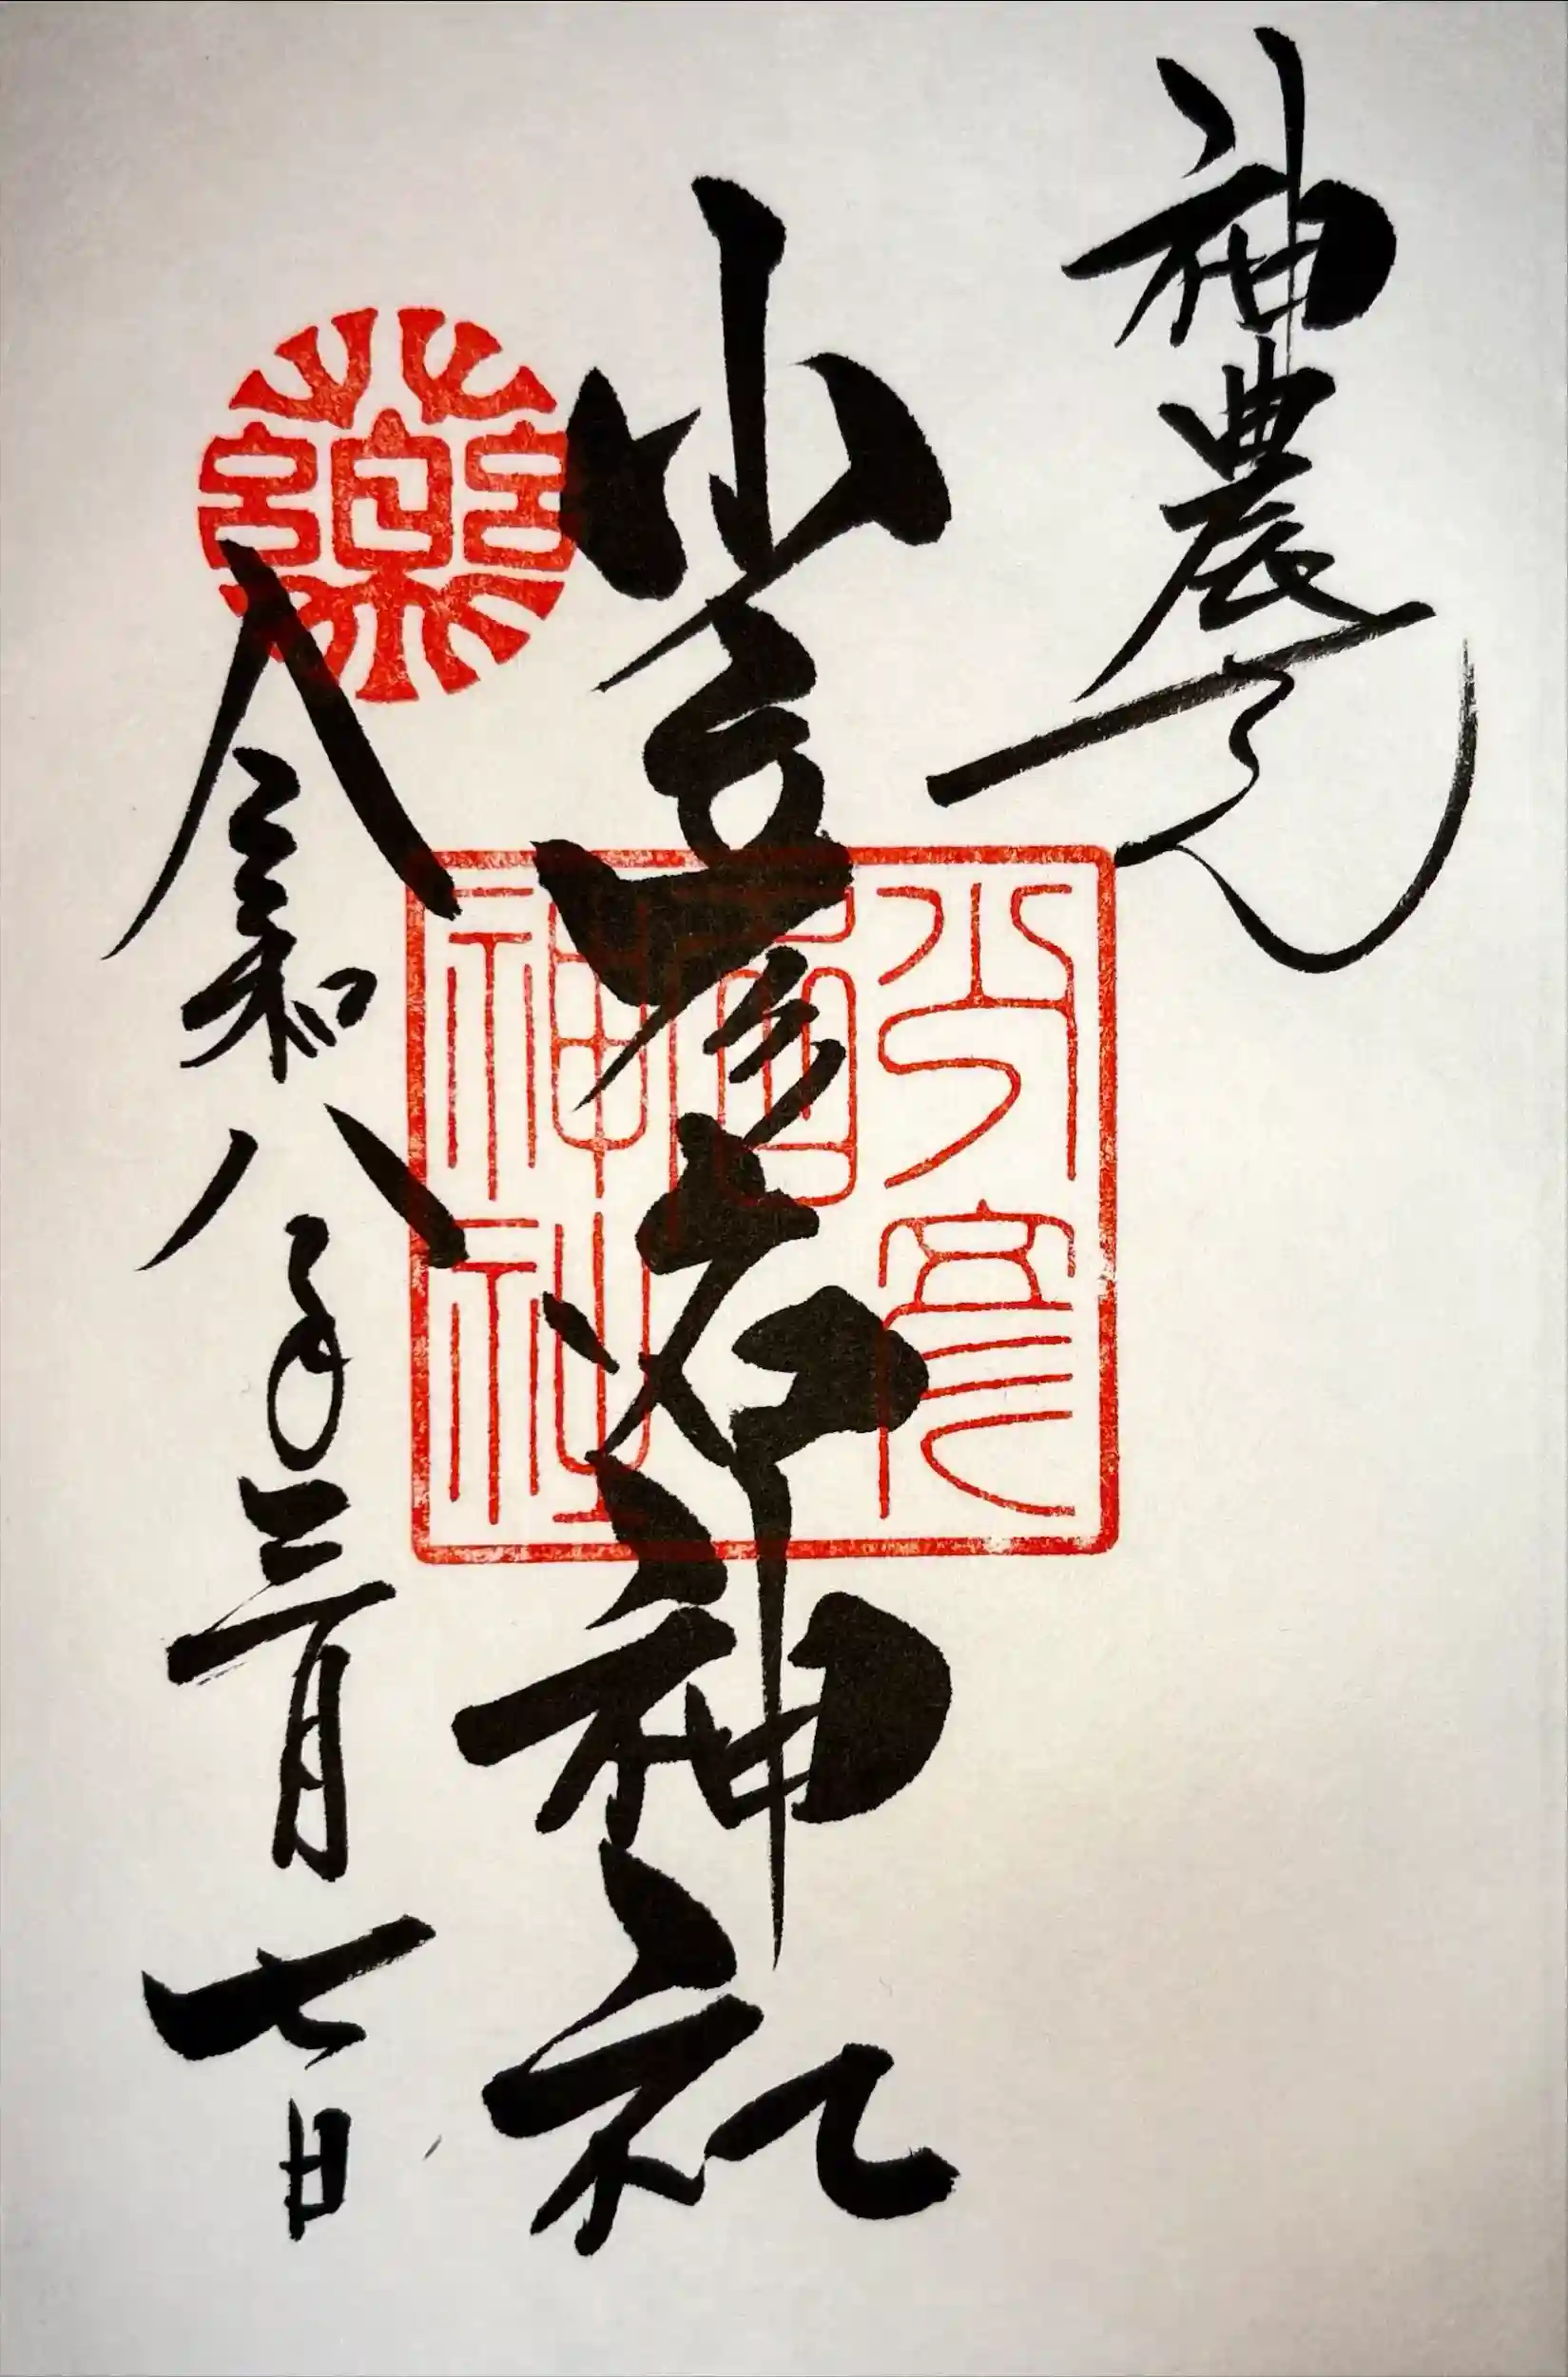 神農さん
少彦名神社
令和八年三月七日
薬
少彦名神社